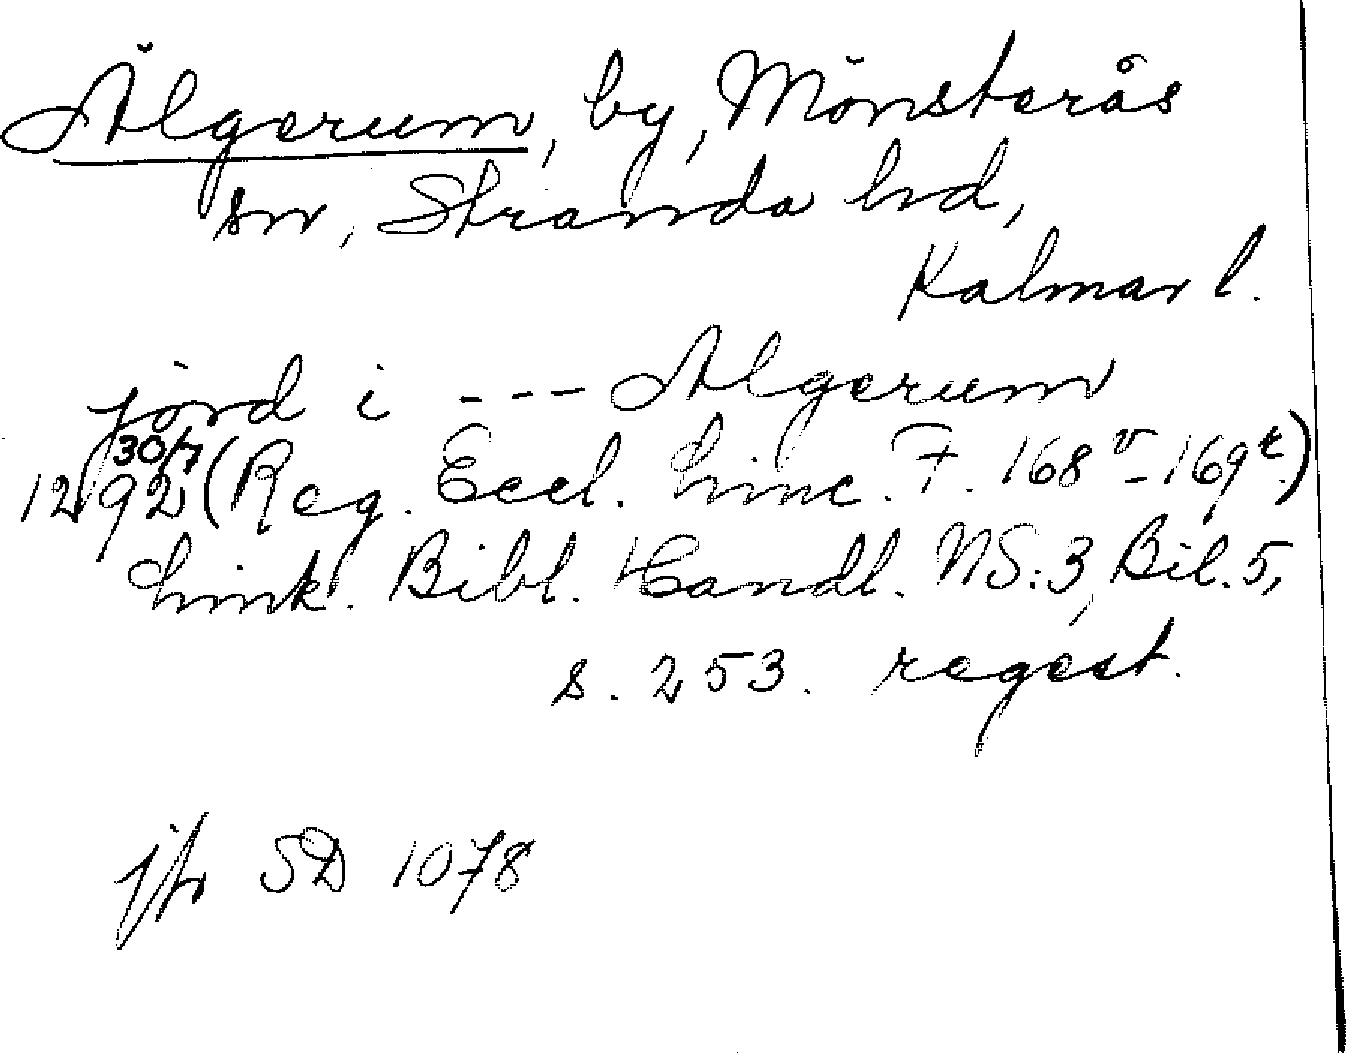 Älgerum, by, Mönsterås
sn, Stranda hd,
Kalmar l.
jord i --- Algerum
30/7
1292 (Reg. Eccl. Linc. F. 168v-169r)
Link. Bibl. Handl. NS:3, Bil. 5,
s. 253. regest.
jfr SD 1078